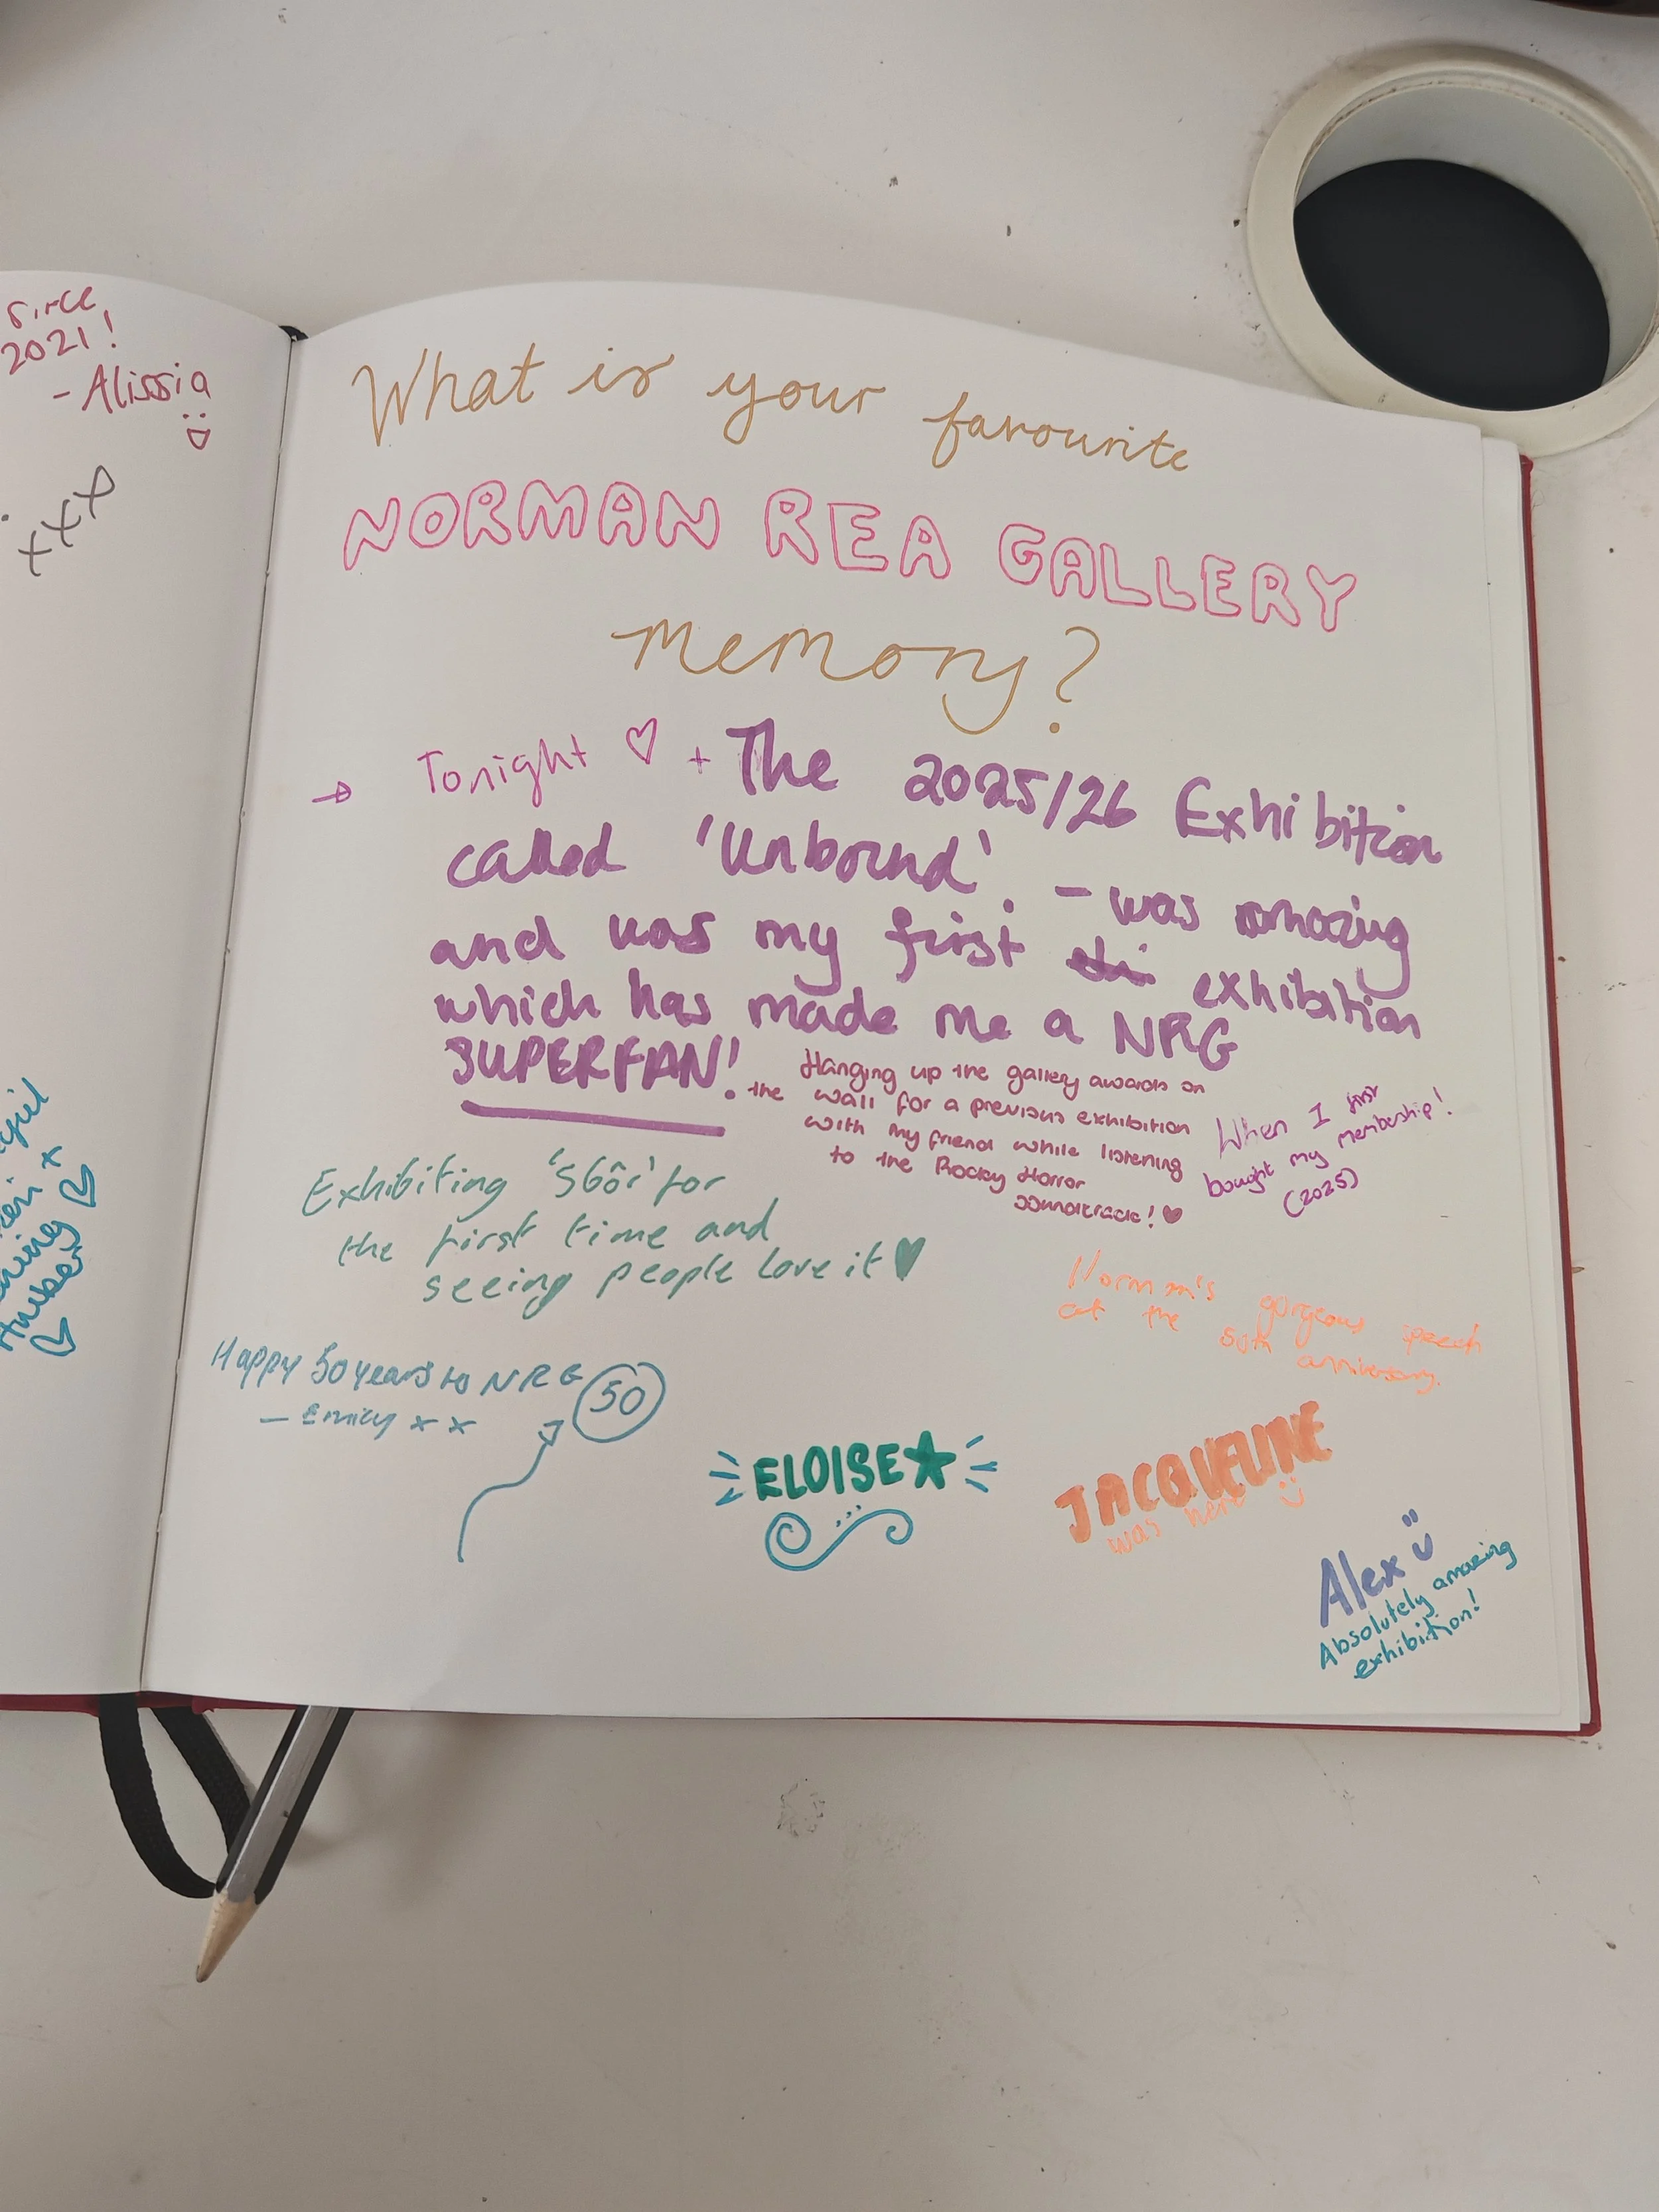 since
2021!
- Alissia
xxx
What is your favourite
NORMAN REA GALLERY
memory?
→ Tonight ♡ + The 2025/26 Exhibition
called 'Unbound'. - was amazing
and was my first exhibition
which has made me a NRG
SUPERFAN!
Hanging up the gallery awards on
the wall for a previous exhibition
with my friend while listening
to the Rocky Horror
soundtrack! ♥
When I first
bought my membership!
(2025)
Exhibiting 'Sbôr' for
the first time and
seeing people love it ♥
Norman's gorgeous speech
at the 50th anniversary.
Happy 50 years to NRG
- Emily x x
50
ELOISE ★
JACQUELINE
was here
Alex
Absolutely amazing
exhibition!